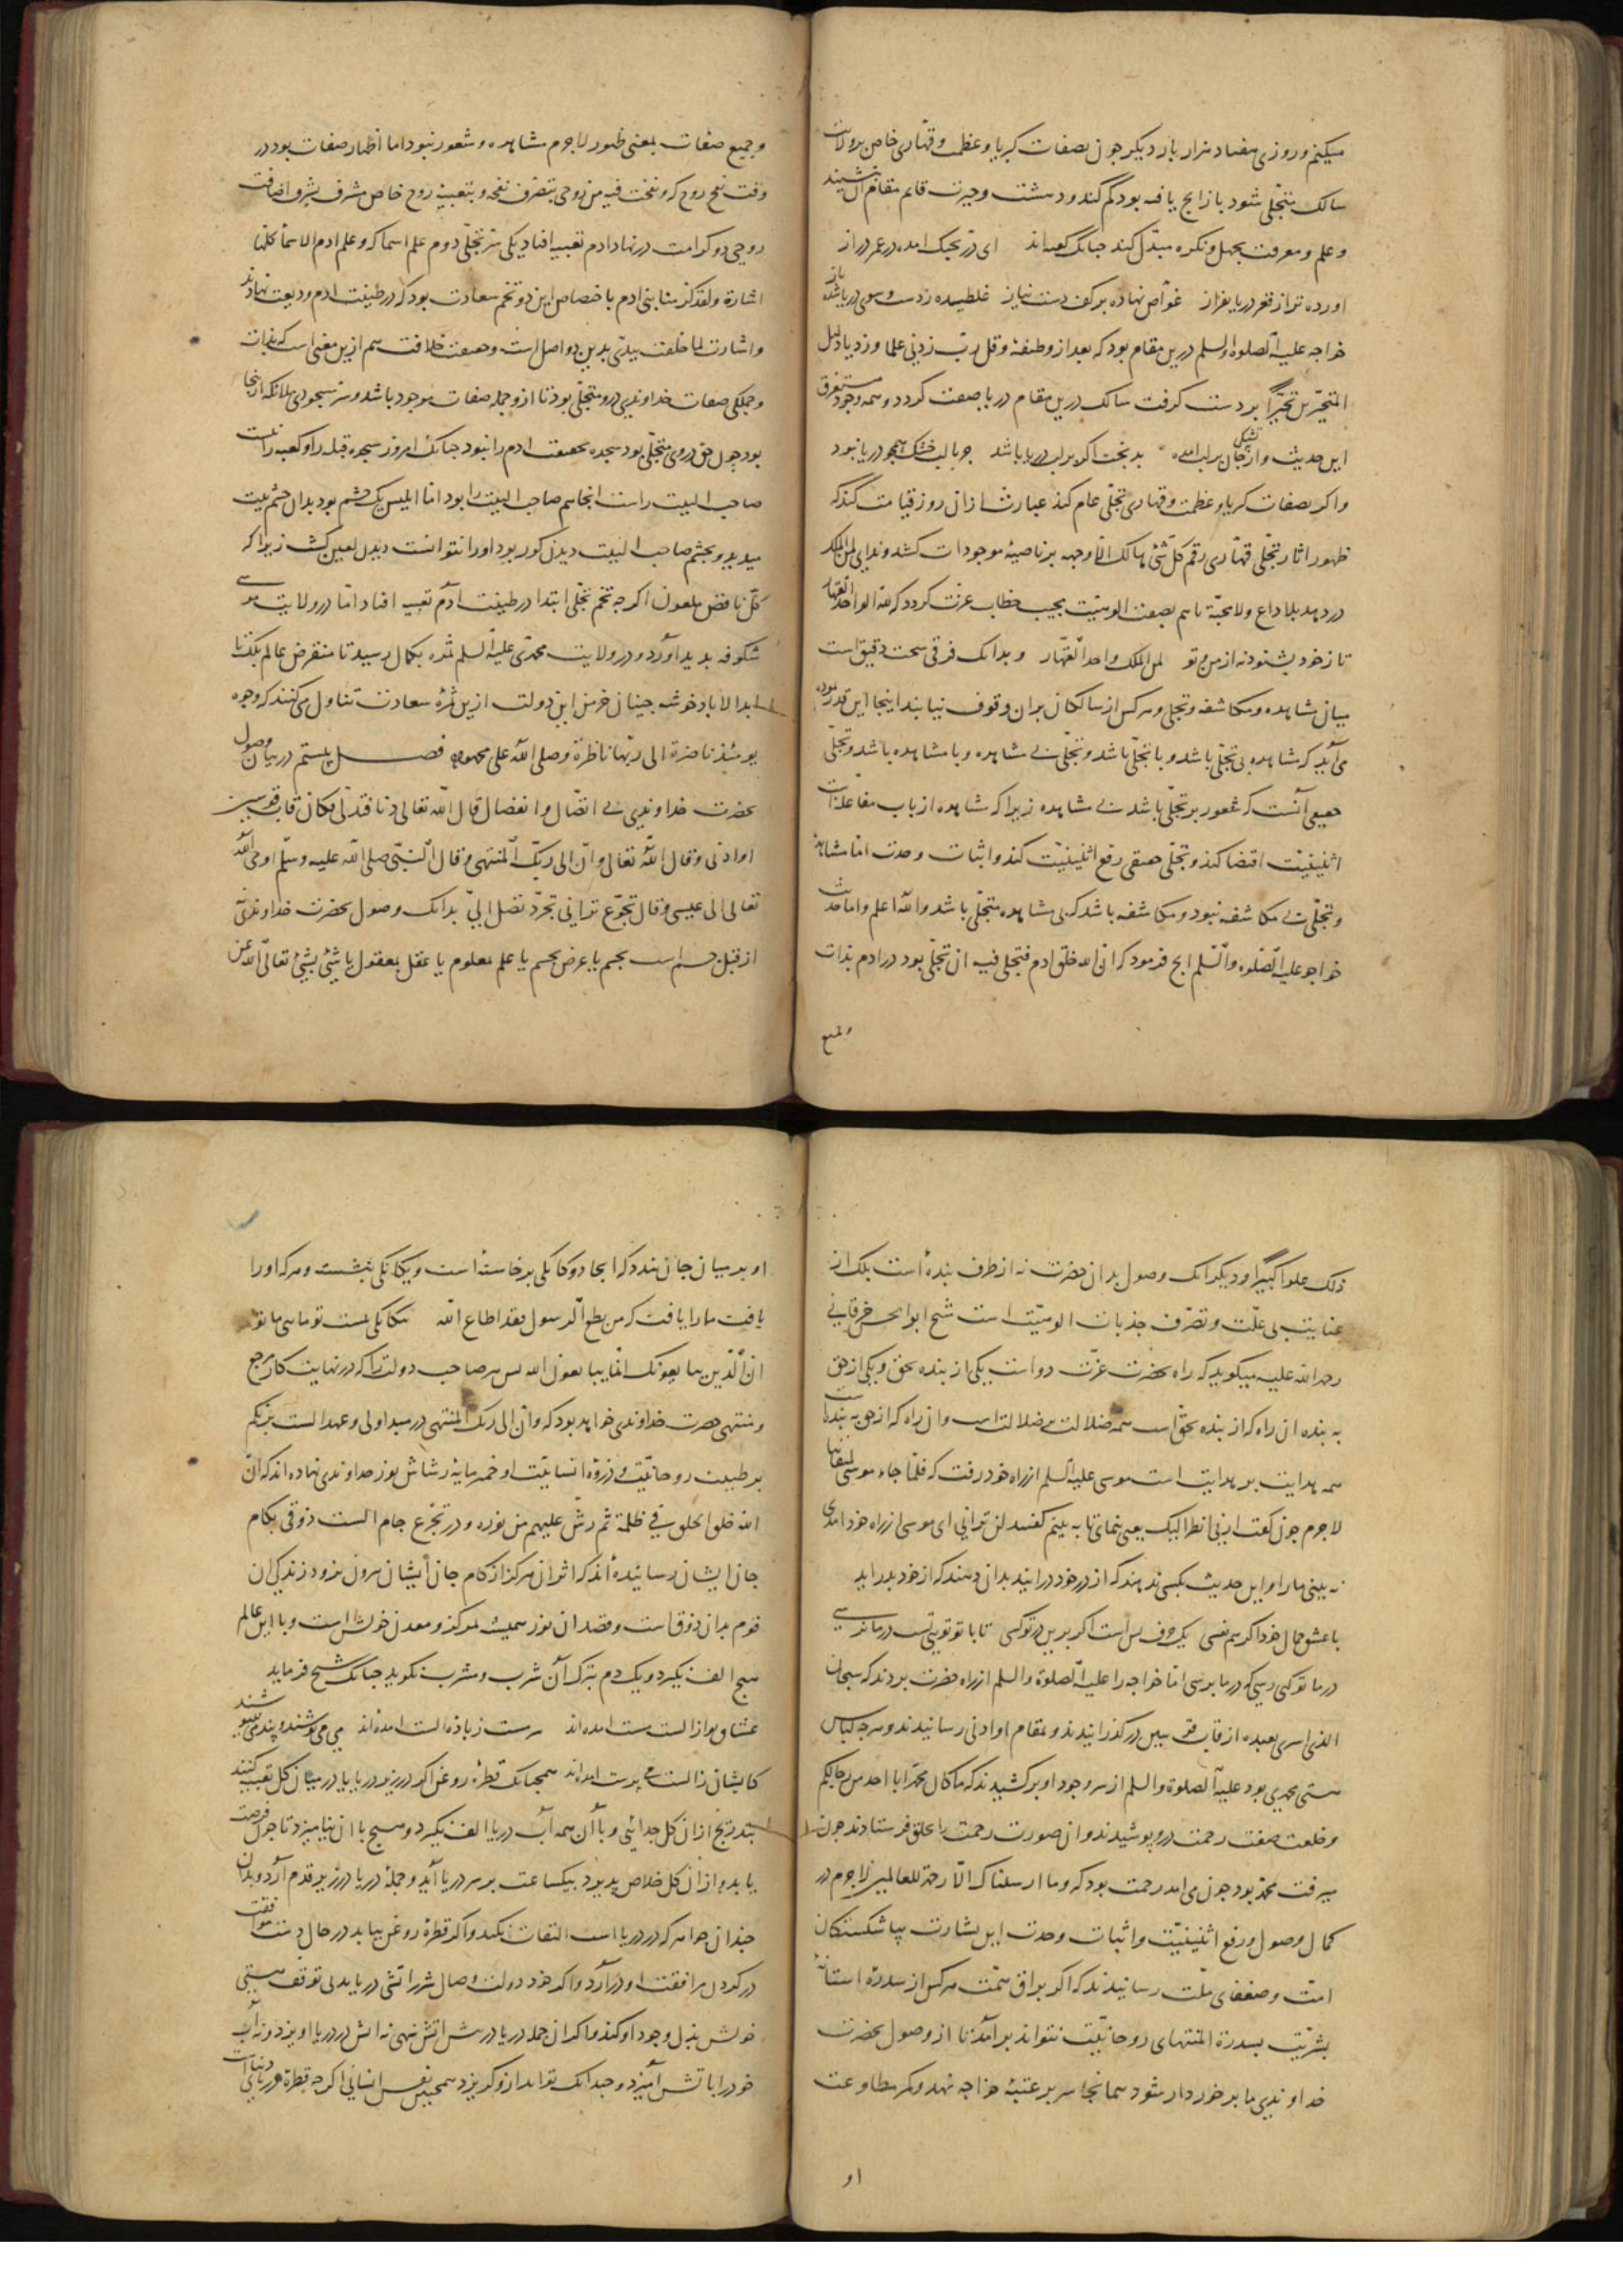 میکنم و روزی هفتاد هزار بار دیگر چون بصفات کبریا و عظمت و قهاری خاص بر ولایت
سالک متجلی شود باز انچ یافه بود گم کند و دهشت و حیرت قایم مقام آن نشیند
و علم و معرفت بجهل و نکره مبدل کند چنانک گفته‌اند ای در تجنک امده در عمر دراز
اورده ترا ز قعر دریا بفراز غواص نهاده بر کف دست نیاز غلطیده ز دست و سوی دریا شده باز
خواجه علیه الصلوه و السلم درین مقام بود که بعد از وظیفه و قل رب زدنی علما و زد یا دلیل
المتحیرین تحیرا بر دست کرفت سالک درین مقام دریا صفت کردد و همه وجود مستغرق
این حدیث و از تشنگی جان بر لب امده بدبخت اکر بر لب دریا باشد جز با لب خشک همچو دریا نبود
و اکر بصفات کبریا و عظمت و قهاری تجلی عام کند عبارت ازان روز قیامت کند که
ظهور اثار تجلی قهاری رقم کل شئ هالک الا وجهه بر ناصیه موجودات کشد و ندای لمن الملک
در دهد بلا داع و لا مجیب تا هم بصفت الوهیت مجیب خطاب عزت کردد که لله الواحد القهار
تا ز خود بشنود نه از من و تو لمن الملک واحد القهار و بدانک فرقی سخت دقیق است
میان مشاهده و مکاشفه و تجلی و هر کس از سالکان بران وقوف نیابند اینجا این قدر نموده
می‌آید که مشاهده بی تجلی باشد و با تجلی باشد و تجلی بی مشاهده و با مشاهده باشد و تجلی
حقیقی آنست که شعور بر تجلی باشد بی مشاهده زیرا که مشاهده از باب مفاعله است
اثنینیت اقتضا کند و تجلی حقیقی رفع اثنینیت کند و اثبات وحدت اما مشاهده
و تجلی بی مکاشفه نبود و مکاشفه باشد که بی مشاهده و تجلی باشد و الله اعلم و اما حدیث
خواجه علیه الصلوه والسلم انچ فرمود که ان الله خلق ادم فتجلی فیه ان تجلی بود در ادم بذات
و جمیع
و جمیع صفات بمعنی ظهور لاجرم مشاهده و شعور نبود اما اظهار صفات بود در
وقت نفخ روح که و نفخت فیه من روحی بتصرف نفخه و بتعبیه روح خاص مشرف بشرف اضافت
روحی دو کرامت در نهاد ادم تعبیه افتاد یکی سر تجلی دوم علم اسما که و علم ادم الاسماء کلها
اشارة و لقد کرمنا بنی ادم باختصاص این دو تخم سعادت بود که در طینت ادم ودیعت نهادند
و اشارت لما خلقت بیدی بدین دو اصل است و حقیقت خلافت هم ازین معنی است که بذات
و جملکی صفات خداوندی درو متجلی بود تا ازو جمله صفات موجود باشد و سر سجودی ملائکه ازینجا
بود چون حق در وی متجلی بود سجده بحقیقت ادم را نبود چنانک امروز سجده قبله را و کعبه را نیست
صاحب البیت راست انجا هم صاحب البیت را بود اما ابلیس یک چشم بود بدان چشم بیت
میدید و بچشم صاحب البیت دیدن کور بود او را نتوانست دیدن لعین کشت زیرا که
کل ناقض ملعون اکرچه تخم تجلی ابتدا در طینت آدم تعبیه افتاد اما در ولایت موسی
شکوفه بدید آورد و در ولایت محمدی علیه السلم ثمره بکمال رسید تا منقرض عالم بلک تا
ابد الاباد خوشه چینان خرمن این دولت ازین ثمرۀ سعادت تناول می‌کنند که وجوه
یومئذ ناضرة الی ربها ناظرة و صلی الله علی محمد و آله فصل بیستم در بیان وصول
بحضرت خداوندی بی اتصال و انفصال قال الله تعالی ثم دنا فتدلی فکان قاب قوسین
او ادنی و قال الله تعالی و ان الی ربک المنتهی و قال النبی صلی الله علیه وسلم اوحی الله
تعالی الی عیسی و قال تجوع ترانی تجرد تصل الیّ بدانک وصول بحضرت خداوندی
از قبیل جسم است بجسم یا عرض بجسم یا علم معلوم یا عقل بمعقول یا شیئ بشیئ تعالی الله عن
ذلک علوا کبیرا و دیکر انک وصول بدان حضرت نه از طرف بنده است بلک از
عنایت بی علت و تصرف جذبات الوهیت است شیخ ابوالحسن خرقانی
رحمه الله علیه میکوید که راه بحضرت عزت دو است یکی از بنده بحق و یکی از حق
به بنده ان راه که از بنده بحق است همه ضلالت بر ضلالت است و ان راه که از حق به بنده است
همه هدایت بر هدایت است موسی علیه السلم از راه خود رفت که فلما جاء موسی لمیقاتنا
لاجرم چون کفت ارنی انظر الیک یعنی بنمای تا به بینم کفتند لن ترانی ای موسی از راه خود امدی
نه بینی ما را و این حدیث بکسی ندهند که از در خود درایند بدان دهند که از خود بدر اید
با عشق جمال خود اکر هم نفسی یک حرف بس است اکر برین در تو کسی تا با تو تویی تست در ما نرسی
در ما تو کی رسی که در ما برسی اما خواجه را علیه الصلوة والسلم از راه حضرت بردند که سبحان
الذی اسری بعبده از قاب قوسین درکذرانیدند و بمقام او ادنی رسانیدند و هرچه لباس
هستی محمدی بود علیه الصلوة والسلم از سر وجود او برکشیدند که ما کان محمد ابا احد من رجالکم
و خلعت صفت رحمت درو پوشیدند و ان صورت رحمت را بخلق فرستادند چون
میرفت محمد بود چون می امد رحمت بود که و ما ارسلناک الا رحمة للعالمین لاجرم در
کمال وصول و رفع اثنینیت و اثبات وحدت این بشارت بپا شکستکان
امت و ضعفای ملت رسانیدند که اکر براق همت هر کس از سدرۀ استانۀ
بشریت بسدرة المنتهای روحانیت نتواند برآمد تا از وصول بحضرت
خداوندی ما برخوردار شود همانجا سر بر عتبۀ خواجه نهد و کمر مطاوعت
او
او بر میان جان بندد که انجا دوکانکی برخاسته است و یکانکی بنشسته و هر که او را
یافت ما را یافت که من یطع الرسول فقد اطاع الله
ان الذین یبایعونک انما یبایعون الله پس هر صاحب دولت را که در نهایت کار مرجع
و منتهی حضرت خداوندی خواهد بود که و ان الی ربک المنتهی در مبدا اولی و عهد الست بربکم
بر طینت روحانیت و ذروۀ انسانیت او خمرمایۀ رشاش نور خداوندی نهاده‌اند که ان
الله خلق الخلق فی ظلمة ثم رش علیهم من نوره و در تجرع جام الست ذوقی بکام
جان ایشان رسانیده‌اند که اثر ان هرکز از کام جان ایشان بیرون نرود زندکی ان
قوم بدان ذوق است و قصد ان نور همیشه بمرکز و معدن خوش است و با این عالم
هیچ الف نکیرد و یک دم بترک آن شرب و مشرب نکوید چنانک شیخ فرماید
عشاق تو از الست مست امده‌اند سرمست ز باده الست امده‌اند می می نوشند و پند می ننیوشند
کایشان ز الست می پرست امده‌اند همچنانک قطرۀ روغن اکر در ریزند در دریا یا در میان کل تعبیه کنند
بتدریج ازان کل جدائی و با آن همه آب دریا الف نکیرد و هیچ با ان نیامیزد تا چون فرصت
یابد و ازان کل خلاص پدیرد بیکساعت بر سر دریا آید و جملۀ دریا در زیر قدم آرد و بدان
چندان جواهر که در دریا است التفات نکند و اکر قطرۀ روغن بیابد در حال دست موافقت
در کردن مرافقت او درآرد و اکر خود دولت وصال شرر اتشی دریابد بی توقف هستی
خویش بذل وجود او کند و اکر ان جمله دریا در پیش اتش نهی نه اتش در دریا اویزد و نه آب
خود را با تش آمیزد و چندانک تواند ازو کریزد همچنین نفس انسانی اکرچه قطرۀ دریای